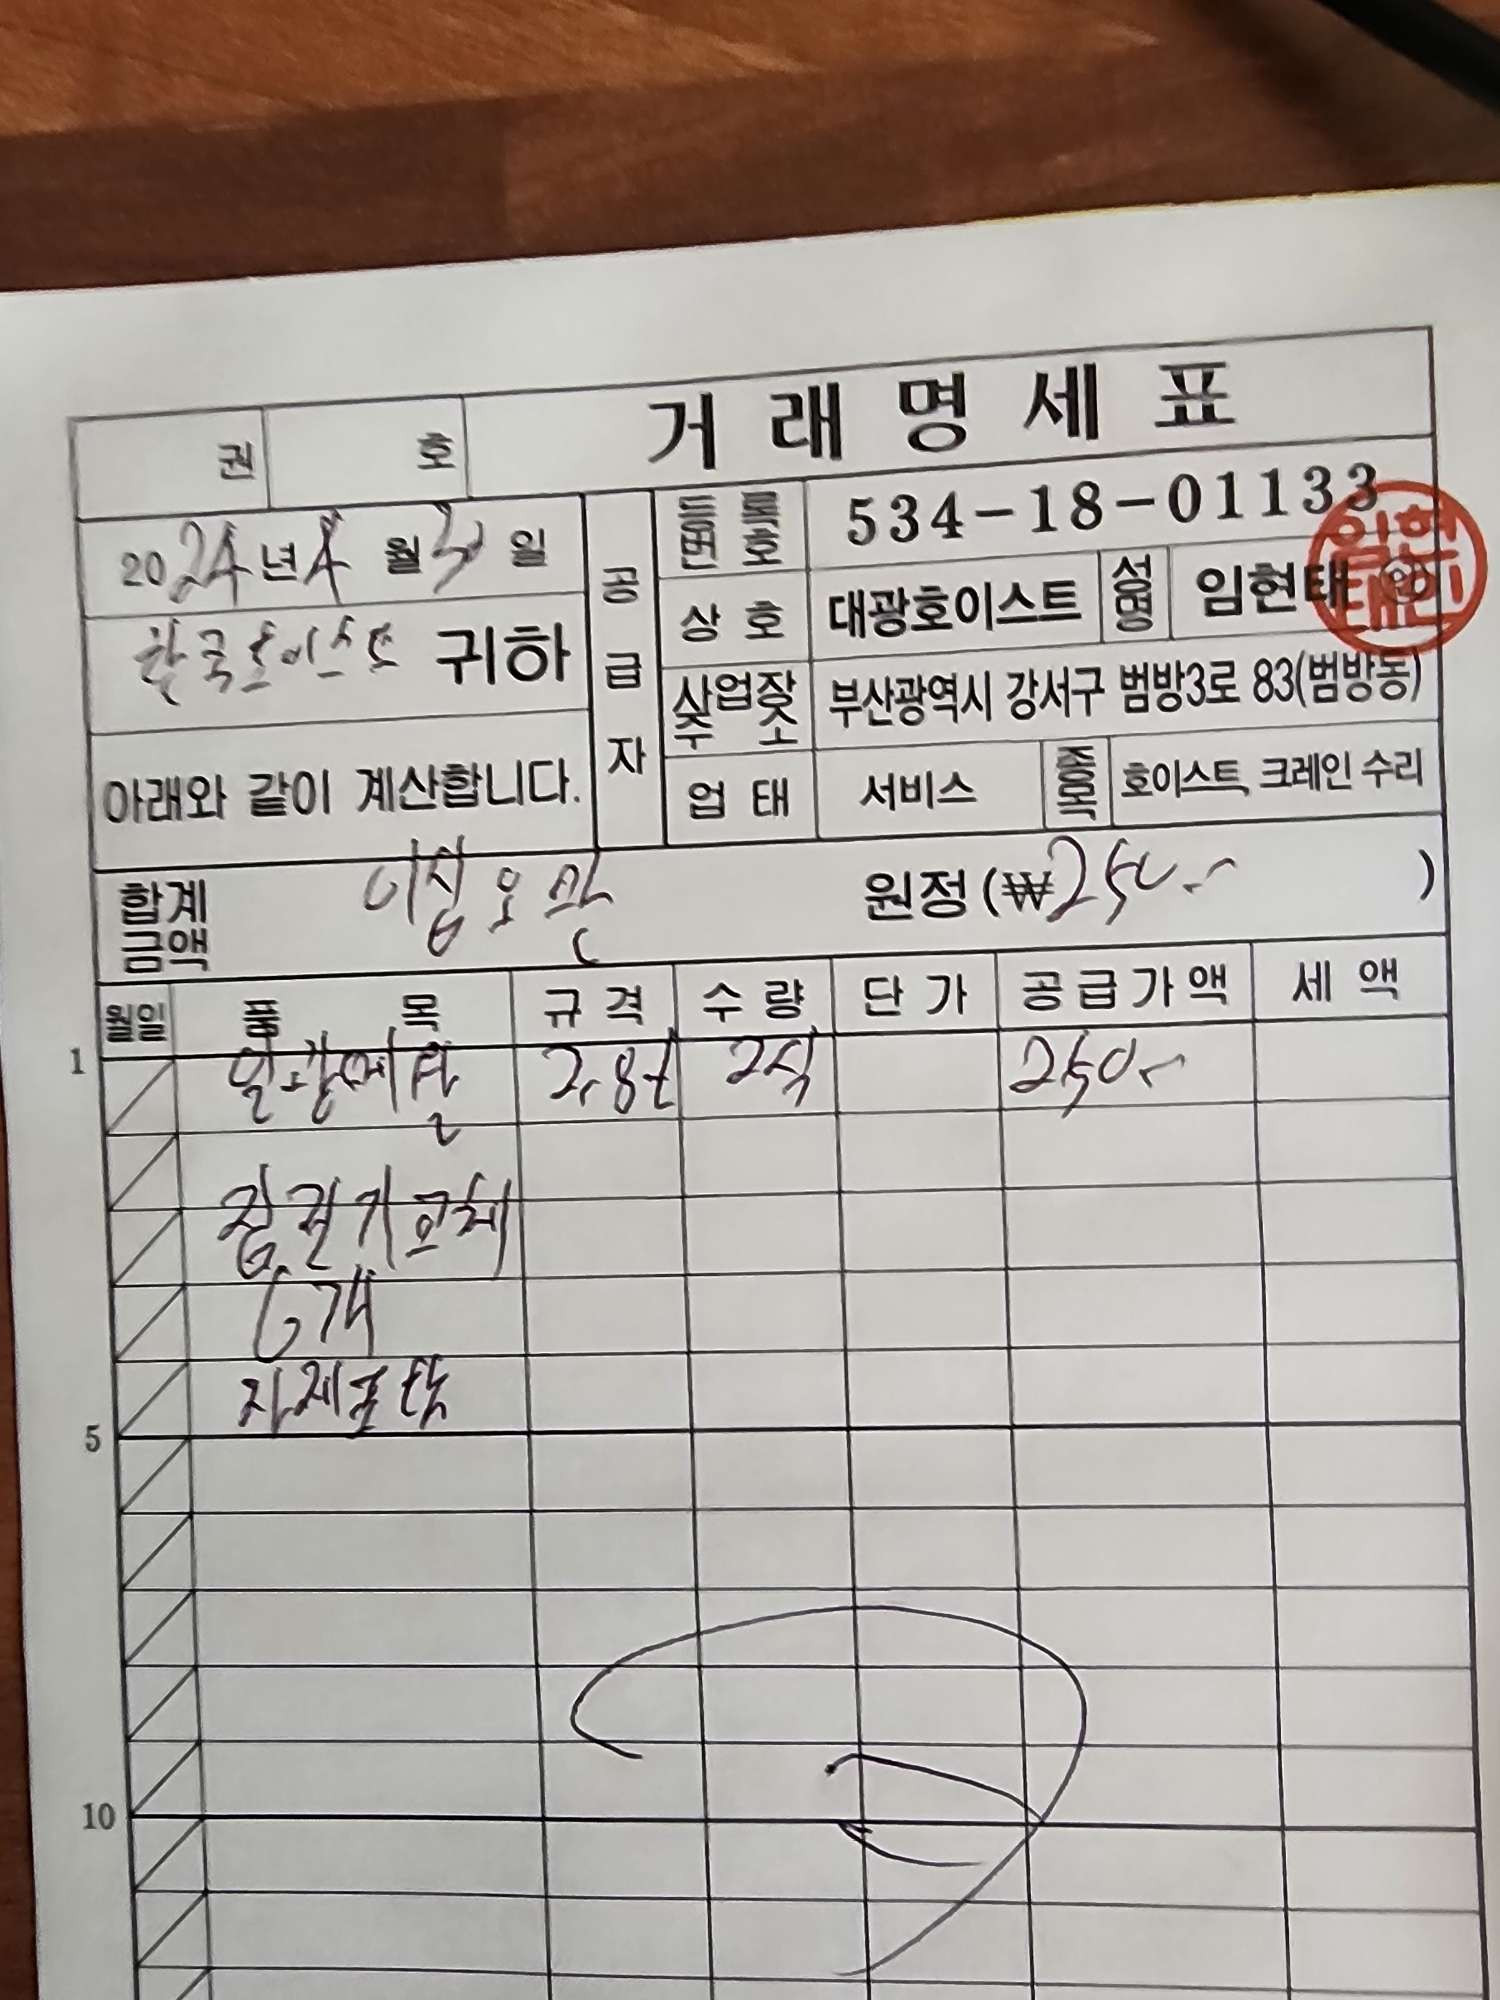 권 호 거래명세표
등록번호 534-18-01133
2024년 4월 일
공급자
상호 대광호이스트 성명 임현태 ㊞
한국호이스트 귀하
사업장주소 부산광역시 강서구 범방3로 83(범방동)
아래와 같이 계산합니다.
업태 서비스 종목 호이스트, 크레인 수리
합계금액 이십오만 원정 (₩250 )
월일 품목 규격 수량 단가 공급가액 세액
1 2.8t 250
집전기교체
6개
자재포함
5
10